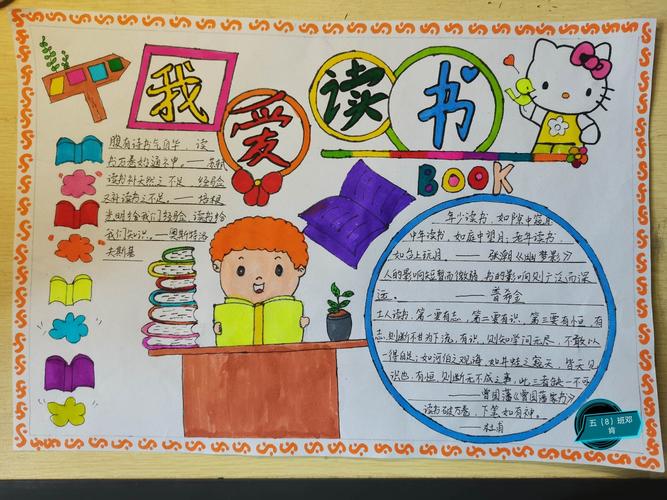 我爱读书
BOOK
腹有诗书气自华，读
书万卷始通神。——苏轼
读书补天然之不足，经验
又补读书之不足。——培根
光明给我们经验，读书给
我们知识。——奥斯特洛
夫斯基
年少读书，如隙中窥月
中年读书，如庭中望月，老年读书，
如台上玩月——张潮《幽梦影》
人的影响短暂而微弱，书的影响则广泛而深
远。——普希金
士人读书，第一要有志，第二要有识，第三要有恒，有
志，则断不甘为下流，有识，则知学问无尽，不敢以
一得自足；如河伯之观海，如井蛙之窥天，皆无见
识也，有恒，则断无不成之事，此三者缺一不可
——曾国藩《曾国藩家书》
读书破万卷，下笔如有神。
——杜甫
五（8）班邓
肯